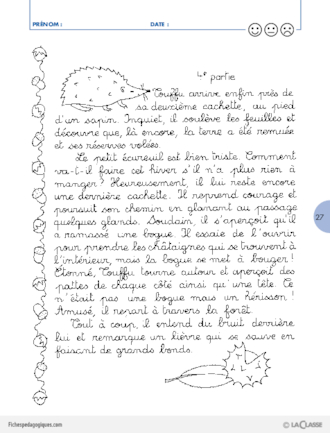 PRÉNOM :
DATE :
4e partie
Touffu arrive enfin près de
sa deuxième cachette, au pied
d'un sapin. Inquiet, il soulève les feuilles et
découvre que, là encore, la terre a été remuée
et ses réserves volées.
Le petit écureuil est bien triste. Comment
va-t-il faire cet hiver s'il n'a plus rien à
manger ? Heureusement, il lui reste encore
une dernière cachette. Il reprend courage et
poursuit son chemin en glanant au passage
quelques glands. Soudain, il s'aperçoit qu'il
a ramassé une bogue. Il essaie de l'ouvrir
pour prendre les châtaignes qui se trouvent à
l'intérieur, mais la bogue se met à bouger !
Étonné, Touffu tourne autour et aperçoit des
pattes de chaque côté ainsi qu'une tête. Ce
n'était pas une bogue mais un hérisson !
Amusé, il repart à travers la forêt.
Tout à coup, il entend du bruit derrière
lui et remarque un lièvre qui se sauve en
faisant de grands bonds.
27
Fichespedagogiques.com
© LA CLASSE